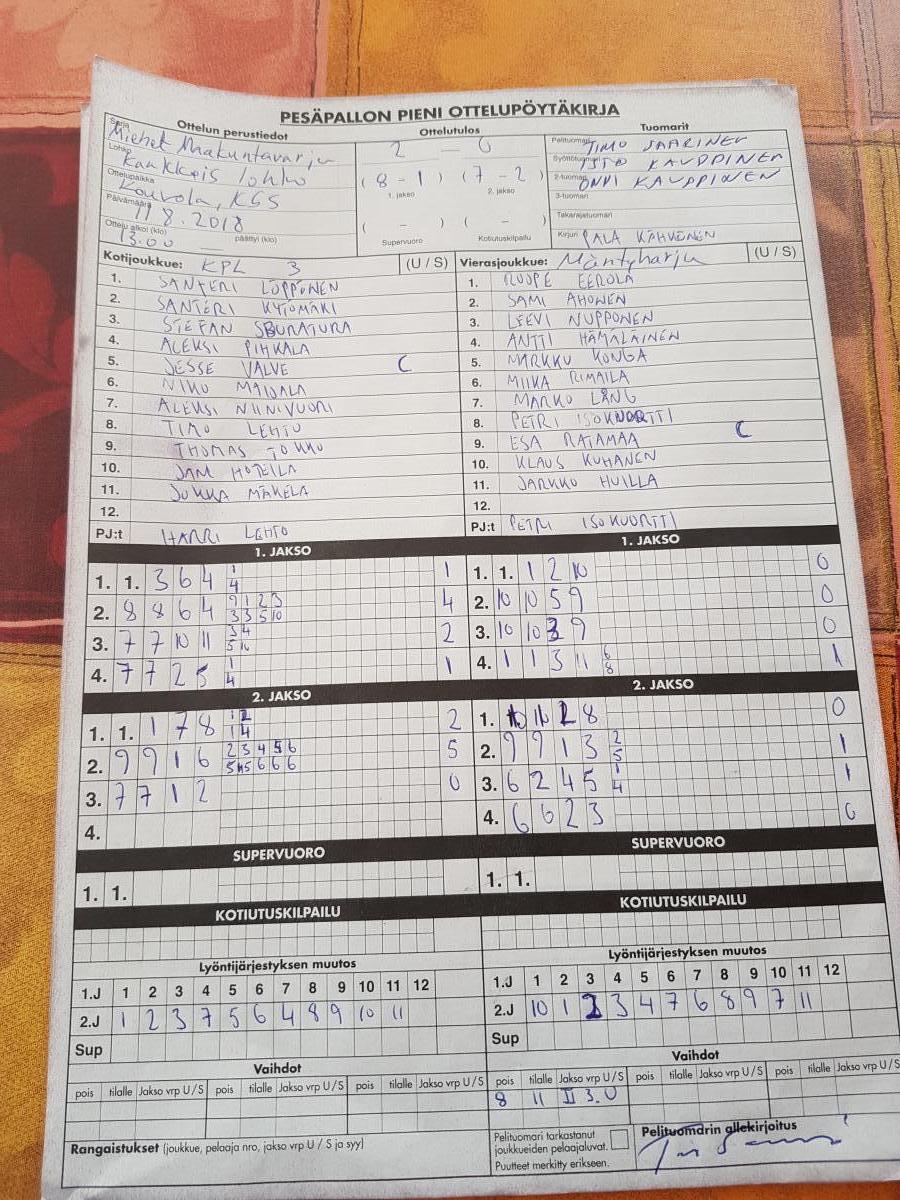 PESÄPALLON PIENI OTTELUPÖYTÄKIRJA
Ottelun perustiedot Ottelutulos Tuomarit
Sarja Miehet Maakuntavarju
Lohko Kaakkois lohko
Ottelupaikka Kouvola, KSS
Päivämäärä 11 8. 2018
Ottelu alkoi (klo) 13.00 päättyi (klo)
2 – 0
(8 - 1) (7 - 2)
1. jakso 2. jakso
( - ) ( - )
Supervuoro Kotiutuskilpailu
Pelituomari TIMO SAARINEN
Syöttötuomari KAUPPINEN
2-tuomari ONNI KAUPPINEN
3-tuomari
Takarajatuomari
Kirjuri PALA KÄHKÖNEN
Kotijoukkue: KPL 3 (U / S)
1. SANTERI LOPPONEN
2. SANTERI KYTÖMÄKI
3. STEFAN SBURATURA
4. ALEKSI PIHKALA
5. JESSE VALVE C
6. NIKO MAIJALA
7. ALEKSI NIINIVUORI
8. TIMO LEHTO
9. THOMAS TOKKO
10. JANI HOTEILA
11. JUKKA MÄKELÄ
12.
PJ:t HARRI LEHTO
Vierasjoukkue: Mäntyharju (U / S)
1. ROOPE EEROLA
2. SAMI AHONEN
3. LEEVI NUPPONEN
4. ANTTI HÄMÄLÄINEN
5. MARKKU KONGA
6. MIIKA RIMAILA
7. MARKO LÅNG
8. PETRI ISOKUORTTI
9. ESA RATAMAA C
10. KLAUS KUHANEN
11. JARKKO HUILLA
12.
PJ:t PETRI ISOKUORTTI
1. JAKSO
1. 1. 3 6 4 1 1
4
2. 8 8 6 4 9 1 2 3 4
3 3 5 10
3. 7 7 10 11 3 4 2
5 10
4. 7 7 2 5 1 1
4
1. JAKSO
1. 1. 1 2 10 0
2. 10 10 5 9 0
3. 10 10 3 9 0
4. 1 1 3 11 6 1
8
2. JAKSO
1. 1. 1 7 8 1 2 2
1 4
2. 9 9 1 6 2 3 4 5 6 5
5 6 6 6
3. 7 7 1 2 0
4.
2. JAKSO
1. 10 2 8 0
2. 9 9 1 3 2 1
5
3. 6 2 4 5 1 1
4
4. 6 6 2 3 0
SUPERVUORO
1. 1.
SUPERVUORO
1. 1.
KOTIUTUSKILPAILU
KOTIUTUSKILPAILU
Lyöntijärjestyksen muutos
1.J 1 2 3 4 5 6 7 8 9 10 11 12
2.J 1 2 3 7 5 6 4 8 9 10 11
Sup
Lyöntijärjestyksen muutos
1.J 1 2 3 4 5 6 7 8 9 10 11 12
2.J 10 1 2 3 4 7 6 8 9 7 11
Sup
Vaihdot
pois tilalle Jakso vrp U / S pois tilalle Jakso vrp U / S pois tilalle Jakso vrp U / S
Vaihdot
pois tilalle Jakso vrp U / S pois tilalle Jakso vrp U / S pois tilalle Jakso vrp U / S
8 11 II 3. U
Rangaistukset (joukkue, pelaaja nro, jakso vrp U / S ja syy)
Pelituomari tarkastanut
joukkueiden pelaajaluvat.
Puutteet merkitty erikseen.
Pelituomarin allekirjoitus